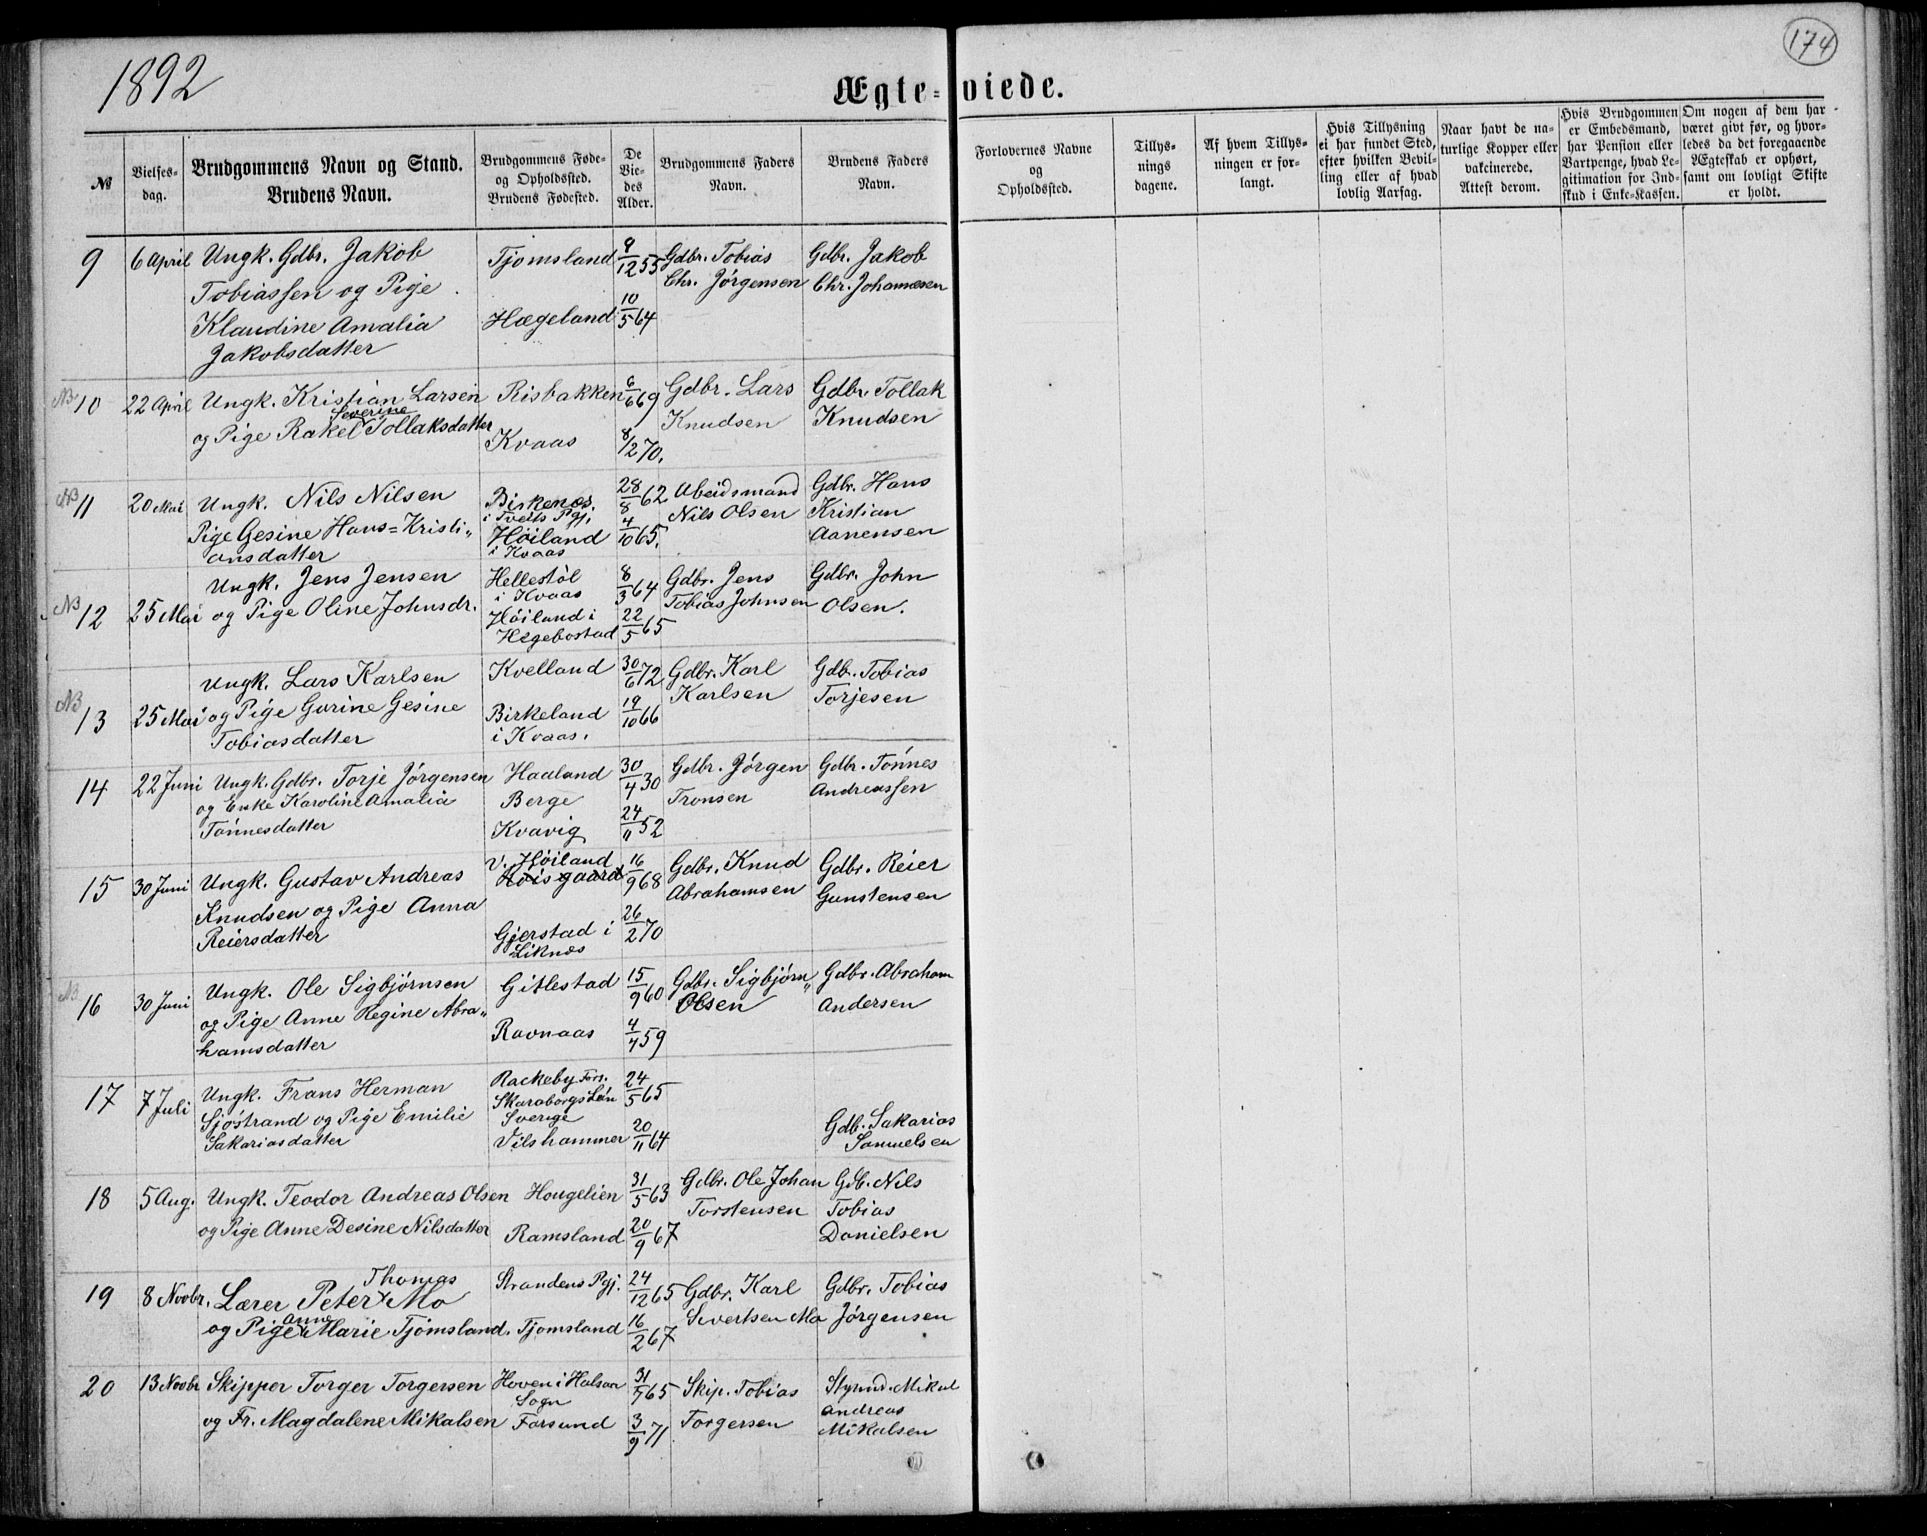 1892
174
Ægte-viede.
№
Vielses-
dag.
Brudgommens Navn og Stand.
Brudens Navn.
Brudgommens Føde-
og Opholdssted.
Brudens Fødested.
De
Vie-
des
Alder.
Brudgommens Faders
Navn.
Brudens Faders
Navn.
Forlovernes Navne
og
Opholdssted.
Tillys-
nings
dagene.
Af hvem Tillys-
ningen er for-
langt.
Hvis Tillysning
ei har fundet Sted,
efter hvilken Bevil-
ling eller af hvad
lovlig Aarsag.
Naar havt de na-
turlige Kopper eller
vakcinerede.
Attest derom.
Hvis Brudgommen
er Embedsmand,
har Pension eller
Vartpenge, hvad Le-
gitimation for Ind-
skud i Enke-Kassen.
Om nogen af dem har
været givt før, og hvor-
ledes da det foregaaende
Ægteskab er ophørt,
samt om lovligt Skifte
er holdt.
9 6 April Ungk. Gdbr. Jakob
Tobiassen og Pige
Klaudine Amalia
Jakobsdatter
Tjomsland
Hægeland
9/12 55
10/5 64
Gdbr. Tobias
Chr. Jørgensen
Gdbr. Jakob
Chr. Johannesen
NB 10 22 April Ungk. Kristian Larsen
Severine
og Pige Rakel Tollaksdatter
Risbakken
Kvaas
6/6 69
8/2 70.
Gdbr. Lars
Knudsen
Gdbr. Tollak
Knudsen
NB 11 20 Mai Ungk. Nils Nilsen
Pige Gesine Hans=Kristi„
ansdatter
Birkenes.
i Tveits Pgj.
Høiland
i Kvaas
28/8 62
4/10 65.
Abeidsmand
Nils Olsen
Gdbr. Hans
Kristian
Aanensen
NB 12 25 Mai Ungk. Jens Jensen
og Pige Oline Johnsdr.
Hellestøl
i Kvaas
Høiland i
Hegebostad
8/3 64
22/5 65
Gdbr. Jens
Tobias Johnsen
Gdbr. John
Olsen.
NB 13 25 Mai Ungk. Lars Karlsen
og Pige Gurine Gesine
Tobiasdatter
Kvelland
Birkeland
i Kvaas.
30/6 72
19/10 66
Gdbr. Karl
Karlsen
Gdb. Tobias
Torjesen
14 22 Juni Ungk. Gdbr. Torje Jørgensen
og Enke Karoline Amalia
Tønnesdatter
Haaland
Berge
Kvavig
30/4 30
24/11 52
Gdbr. Jørgen
Tronsen
Gdbr. Tønnes
Andreassen
15 30 Juni Ungk. Gustav Andreas
Knudsen og Pige Anna
Reiersdatter
V. Høiland
Kvisgaard
Gjerstad i
Liknes
16/9 68
26/2 70
Gdbr. Knud
Abrahamsen
Gdbr. Reier
Gunstensen
NB 16 30 Juni Ungk. Ole Sigbjørnsen
og Pige Anne Regine Abra„
hamsdatter
Gitlestad
Ravnaas
15/9 60
4/4 59
Gdbr. Sigbjørn„
Olsen
Gdbr. Abraham
Andersen
17 7 Juli Ungk. Frans Herman
Sjøstrand og Pige Emilie
Sakariasdatter
Rackeby Fors.
Skaraborgs Län
Sverige
Vilshammer
24/5 65
20/11 64
Gdb. Sakarias
Samuelsen
18 5 Aug. Ungk. Teodor Andreas Olsen
og Pige Anne Desine Nilsdatter
Hougelien
Ramsland
31/5 63
20/9 67
Gdbr. Ole Johan
Torstensen
Gdb. Nils
Tobias
Danielsen
19 8 Novbr. Lærer Peter Thomas Mo
og Pige Anne Marie Tjømsland.
Strandens Pgj.
Tjomsland
24/12 65
16/2 67
Gdbr. Karl
Sivertsen Mo
Gdbr. Tobias
Jørgensen
20 13 Novbr Skipper Torger Torgersen
og Fr. Magdalene Mikalsen
Hoven i Halsaa
Sogn
Farsund
31/7 65
3/9 71
Skip. Tobias
Torgersen
Styrmd. Mikal
Andreas
Mikalsen